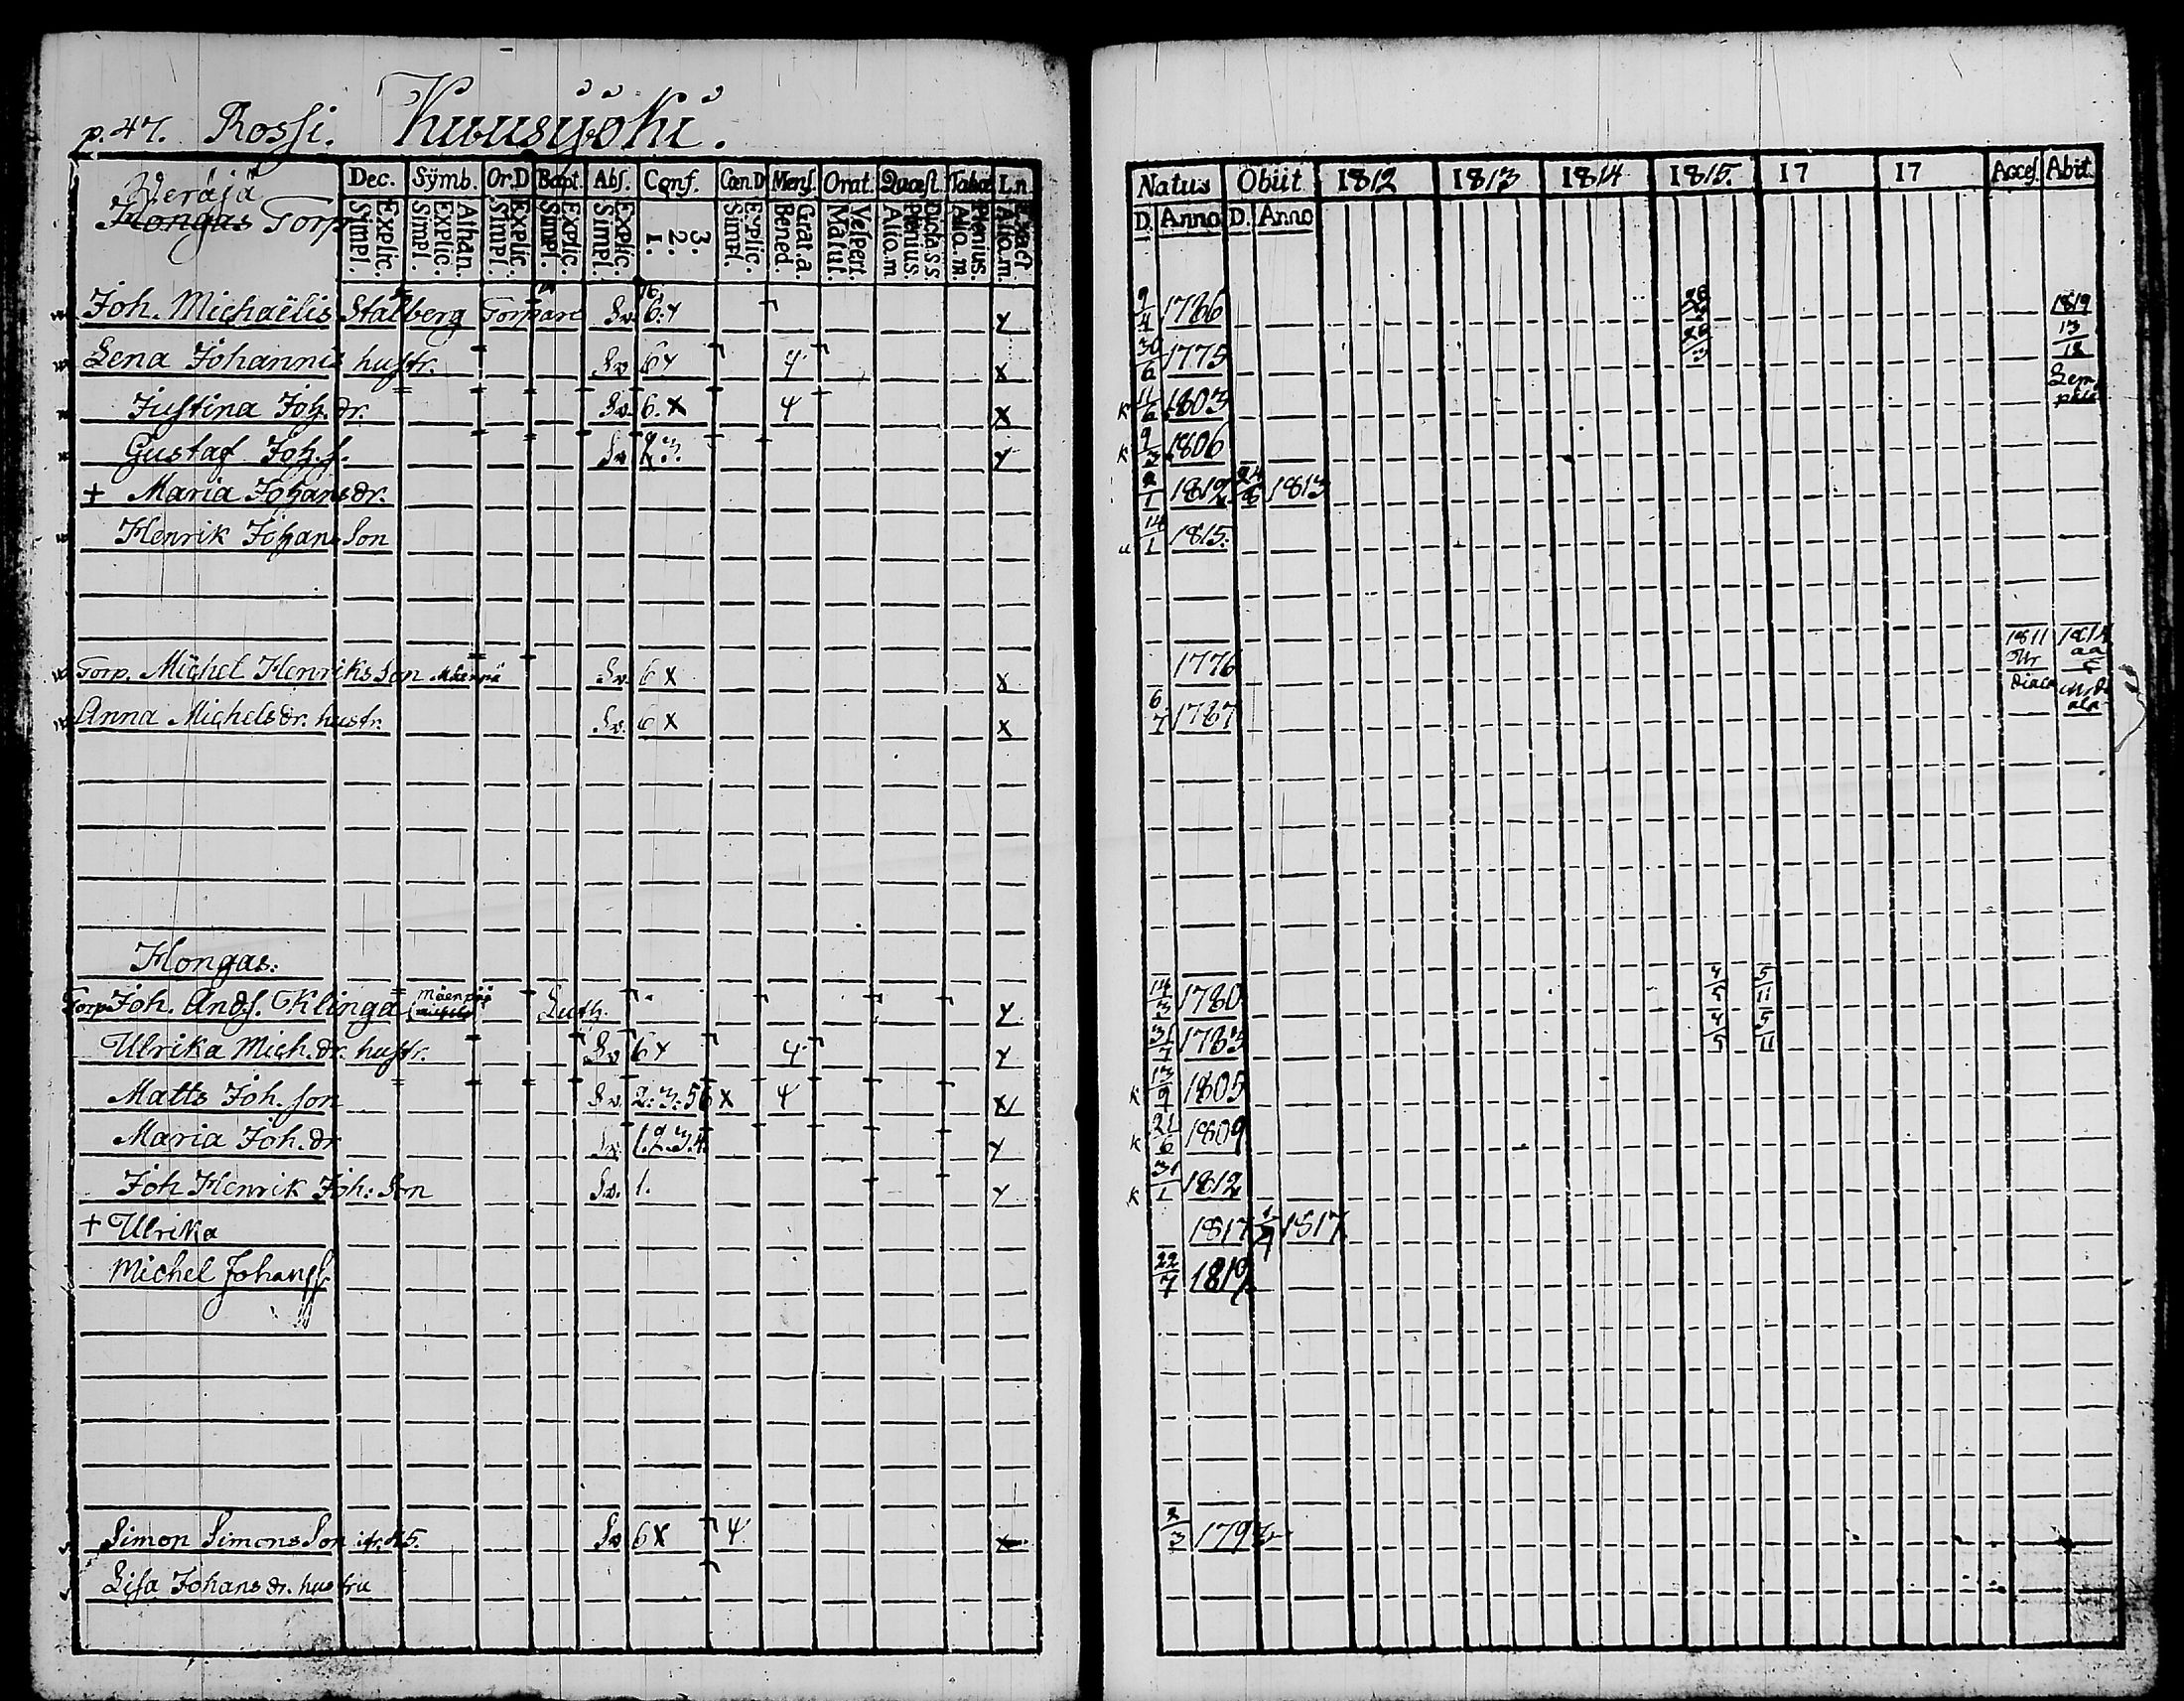 p. 47. Rossi. Kuusijoki.
Weräjä
Hongas Torp
Dec. Symb. Or.D Bapt. Abs. Conf. Cœn.D Mens. Orat. Quæst. Tabul. L.n.
Explic. Simpl. Athan. Explic. Simpl. Explic. Simpl. Explic. Simpl. Explic. Simpl. 3. 2. 1. Explic. Simpl. Grat.a. Bened. Vespert. Matut. Dicta.s.s. Plenius. Aliq.m Plenius. Aliq.m. Exact Aliq.m.
Natus Obiit 1812 1813 1814 1815. 17 17 Acces. Abit.
D. Anno D. Anno
Joh. Michaëlis Stålberg Torpare Sv. 6. x x 9/4 1786 1819 13/12
Lena Johannis hustr. Sv 6 x 4 x 30/6 1775
Justina Joh. dr. Sv. 6. x 4 x k 11/6 1803
Gustaf Joh. s. Sv 2 3. x k 9/3 1806
+ Maria Johans dr. 2/1 1812 1813
Henrik Johans Son 14/1 1815.
Torp. Michel Henriks Son Sv. 6 x x 1776 1811
Anna Michels dr. hustr. Sv. 6 x x 6/7 1787
Hongas.
Torp. Joh. Ands. Klinga Mäenpää Luth. x 14/3 1780 4/5 5/11
Ulrika Mich. dr. hustr. Sv 6 x 4 x 31/7 1783 4/5 5/11
Matts Joh. son Sv. 2. 3. 5 6 x 4 x k 13/9 1805
Maria Joh. dr Sv 1. 2 3. 4. x k 21/6 1809
Joh Henrik Joh. Son Sv. 1. x k 31/1 1812
+ Ulrika 1817 1817
Michel Johans s. 22/7 1819
Simon Simons Son Sv 6 x 4 x 2/3
Lisa Johans dr. hustru